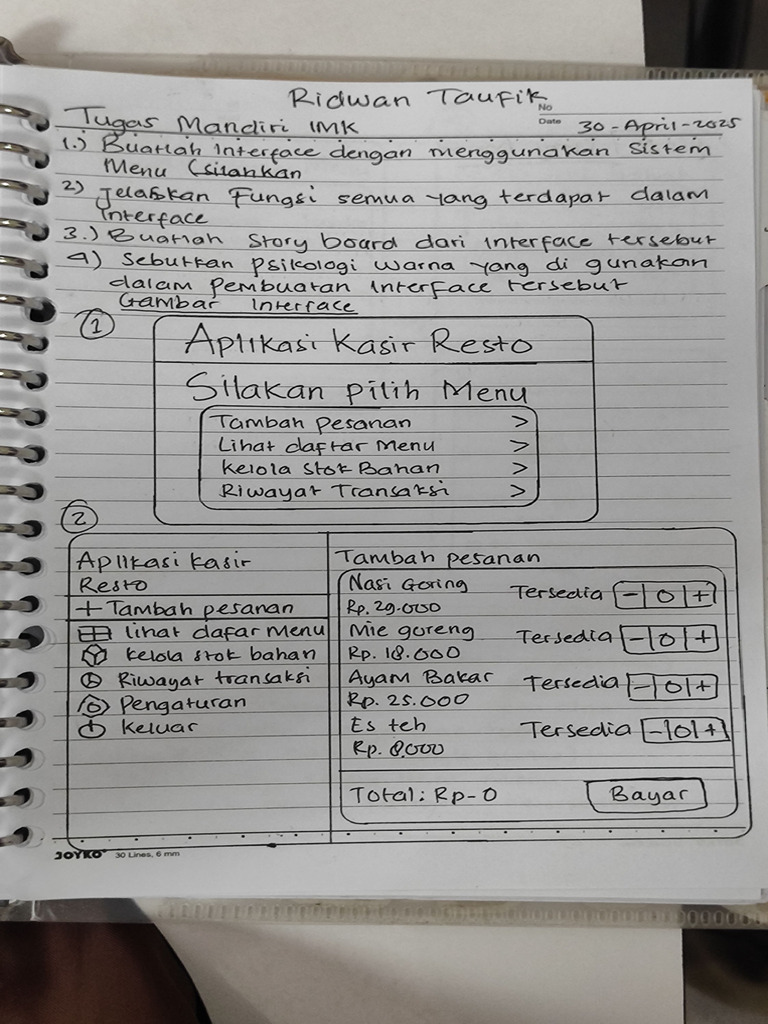 Ridwan Taufik
No
Tugas Mandiri IMK
Date 30-April-2025
1.) Buatlah Interface dengan menggunakan sistem
Menu (silahkan
2) Jelaskan Fungsi semua yang terdapat dalam
interface
3.) Buatlah Story board dari interface tersebut
4) Sebutkan psikologi warna yang di gunakan
dalam pembuatan interface tersebut
Gambar Interface
1
Aplikasi Kasir Resto
Silakan pilih Menu
Tambah pesanan >
Lihat daftar Menu >
Kelola Stok Bahan >
Riwayat Transaksi >
2
Aplikasi kasir
Resto
+ Tambah pesanan
lihat dafar Menu
kelola stok bahan
Riwayat transaksi
Pengaturan
Keluar
Tambah pesanan
Nasi Goring Tersedia - 0 +
Rp. 20.000
Mie goreng Tersedia - 0 +
Rp. 18.000
Ayam Bakar Tersedia - 0 +
Rp. 25.000
Es teh Tersedia - 0 +
Rp. 8.000
Total: Rp-0 Bayar
JOYKO 30 Lines, 6 mm